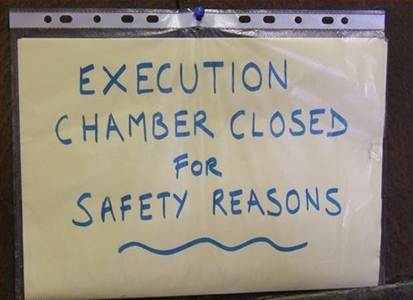 EXECUTION
CHAMBER CLOSED
FOR
SAFETY REASONS